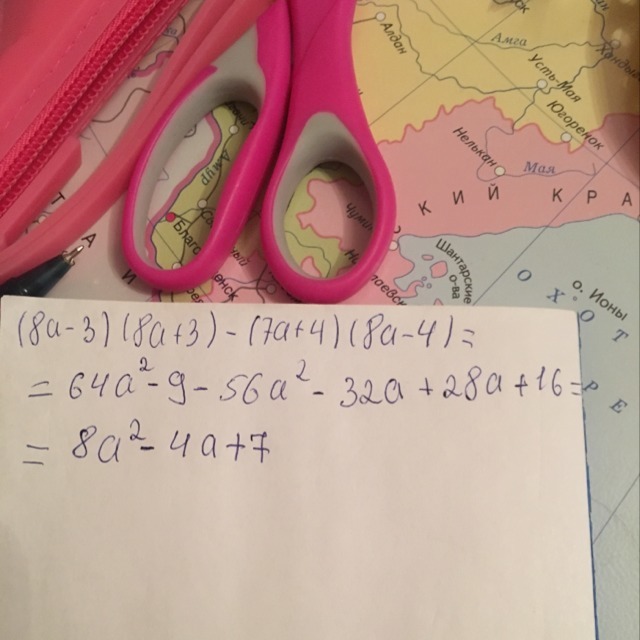 Алдан
Амга
Усть-Мая
Югоренок
Нелькан
Мая
КИЙ КРА
Шантарские
о-ва
о. Ионы
ОХОТ
РЕ
ТАЙ
(8a-3)(8a+3)-(7a+4)(8a-4)=
=64a²-9-56a²-32a+28a+16=
=8a²-4a+7